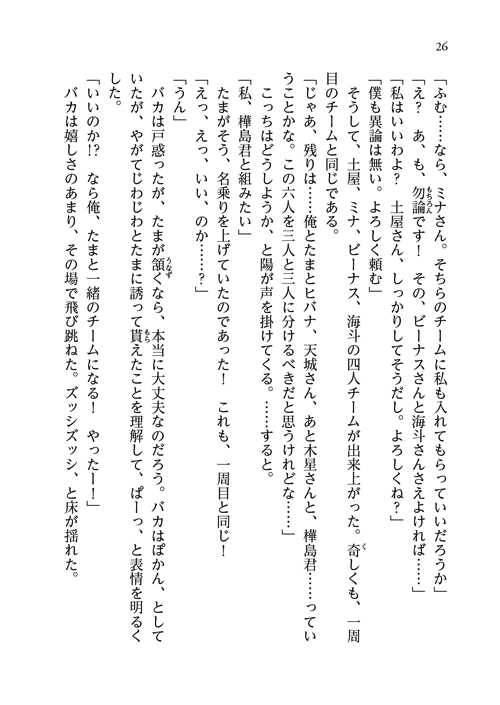 26
「ふむ……なら、ミナさん。そちらのチームに私も入れてもらっていいだろうか」
「え？　あ、も、勿論です！　その、ビーナスさんと海斗さんさえよければ……」
「私はいいわよ？　土屋さん、しっかりしてそうだし。よろしくね？」
「僕も異論は無い。よろしく頼む」
　そうして、土屋、ミナ、ビーナス、海斗の四人チームが出来上がった。奇しくも、一周
目のチームと同じである。
「じゃあ、残りは……俺とたまとヒバナ、天城さん、あと木星さんと、樺島君……ってい
うことかな。この六人を三人と三人に分けるべきだと思うけれどな……」
　こっちはどうしようか、と陽が声を掛けてくる。……すると。
「私、樺島君と組みたい」
　たまがそう、名乗りを上げていたのであった！　これも、一周目と同じ！
「えっ、えっ、いい、のか……？」
「うん」
　バカは戸惑ったが、たまが頷くなら、本当に大丈夫なのだろう。バカはぽかん、として
いたが、やがてじわじわとたまに誘って貰えたことを理解して、ぱーっ、と表情を明るく
した。
「いいのか!?　なら俺、たまと一緒のチームになる！　やったー！」
　バカは嬉しさのあまり、その場で飛び跳ねた。ズッシズッシ、と床が揺れた。